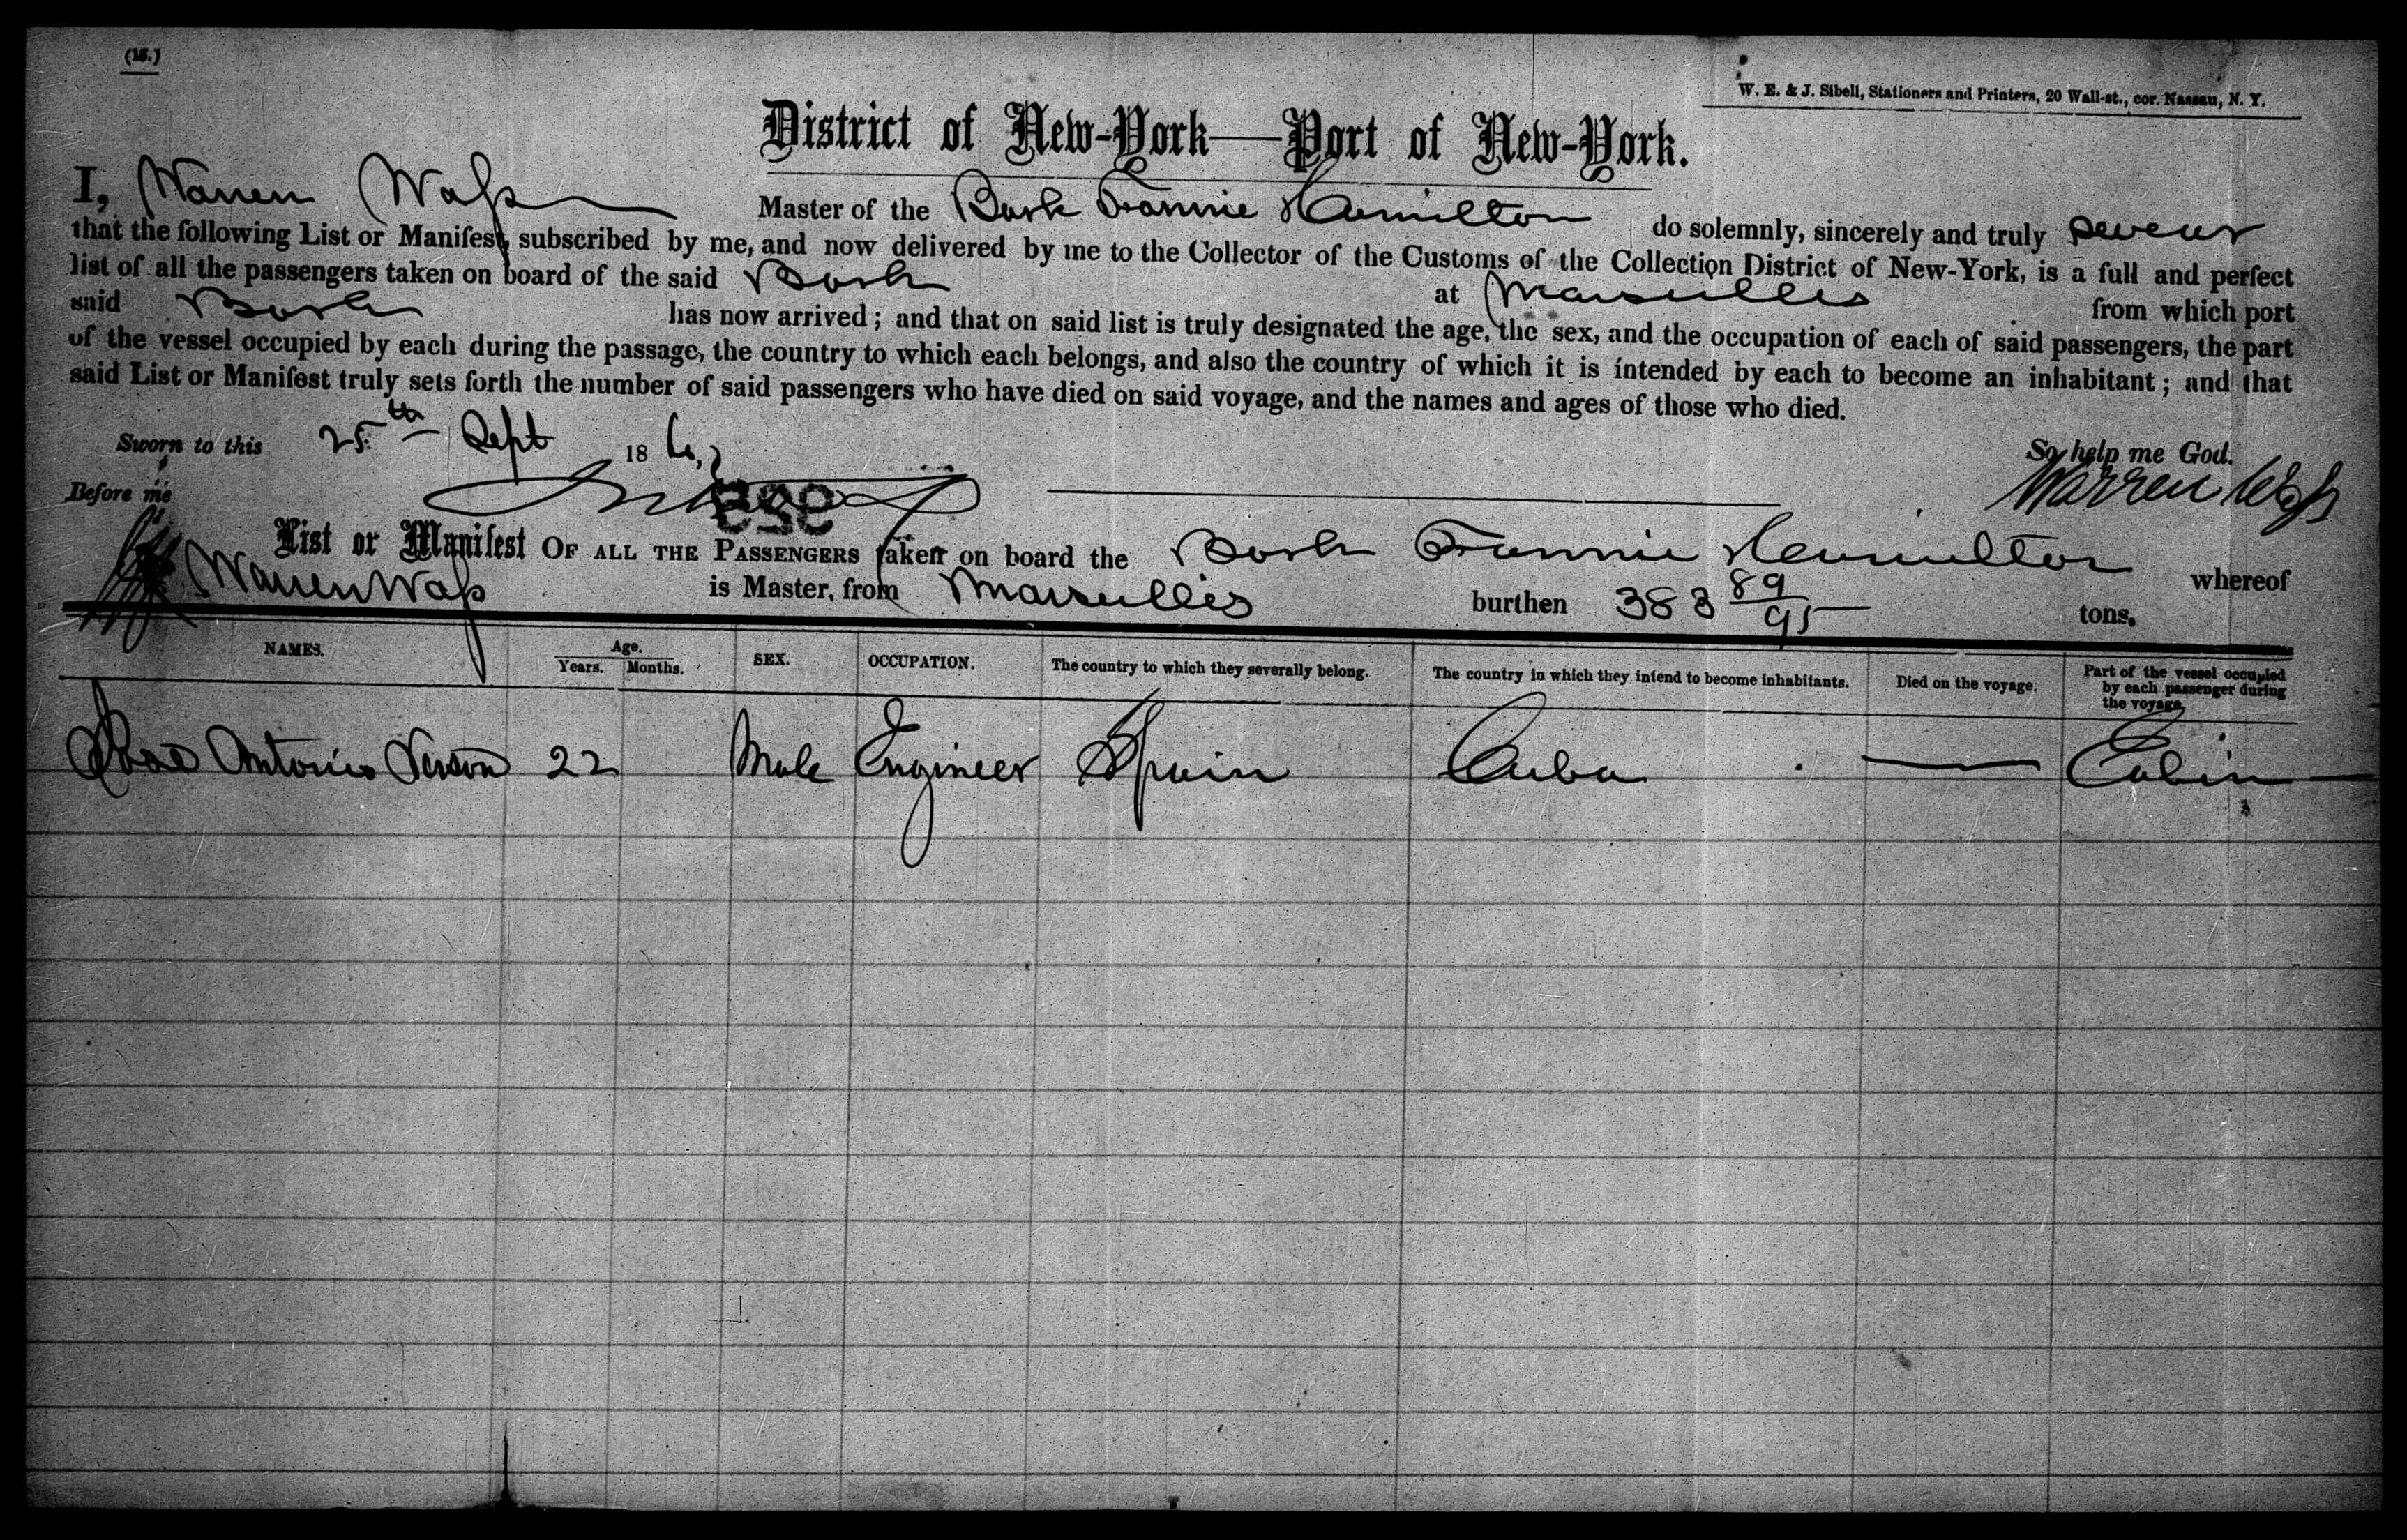 (15.)
W. E. & J. Sibell, Stationers and Printers, 20 Wall-st., cor. Nassau, N. Y.
District of New-York—Port of New-York.
I, Warren Wass Master of the Bark Fannie Hamilton do solemnly, sincerely and truly swear
that the following List or Manifest, subscribed by me, and now delivered by me to the Collector of the Customs of the Collection District of New-York, is a full and perfect
list of all the passengers taken on board of the said Bark at Marseilles from which port
said Bark has now arrived; and that on said list is truly designated the age, the sex, and the occupation of each of said passengers, the part
of the vessel occupied by each during the passage, the country to which each belongs, and also the country of which it is intended by each to become an inhabitant; and that
said List or Manifest truly sets forth the number of said passengers who have died on said voyage, and the names and ages of those who died.
Sworn to this 25th Sept 186 So help me God.
Before me Warren Wass
List or Manifest OF ALL THE PASSENGERS taken on board the Bark Fannie Hamilton whereof
Warren Wass is Master, from Marseilles burthen 383 89/95 tons.
NAMES. Age. Years. Months. SEX. OCCUPATION. The country to which they severally belong. The country in which they intend to become inhabitants. Died on the voyage. Part of the vessel occupied by each passenger during the voyage.
Antonio 22 Male Engineer Spain Cuba — Cabin